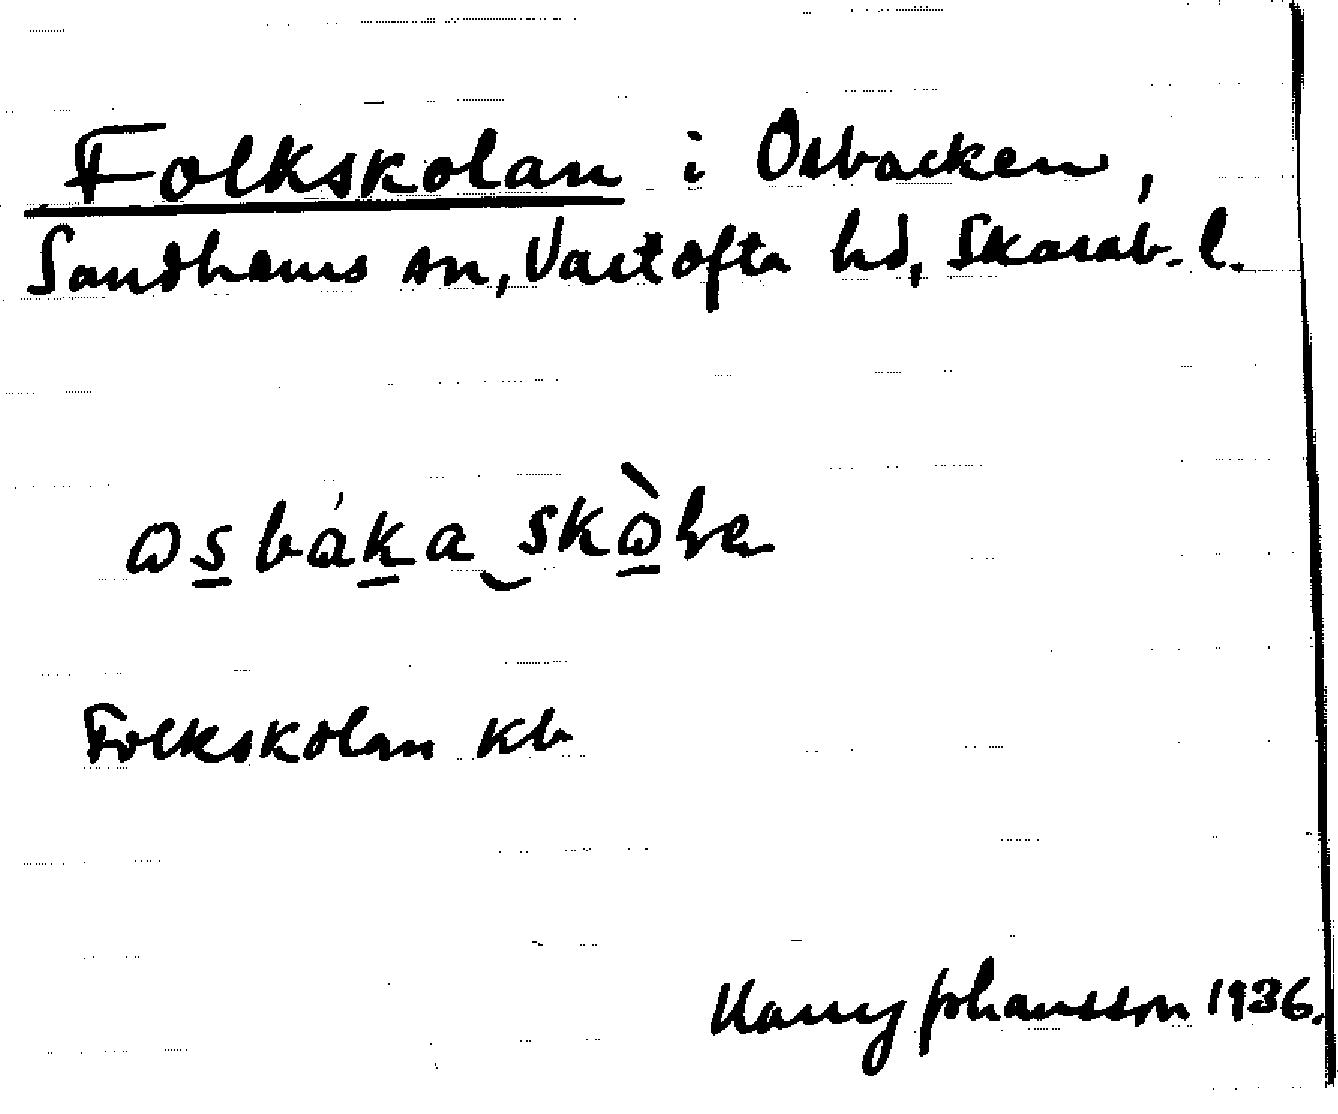 Folkskolan i Osbacken,
Sandhems sn, Vartofta hd, Skarab. l.
Folkskolan kb
Harry Johansson 1936.